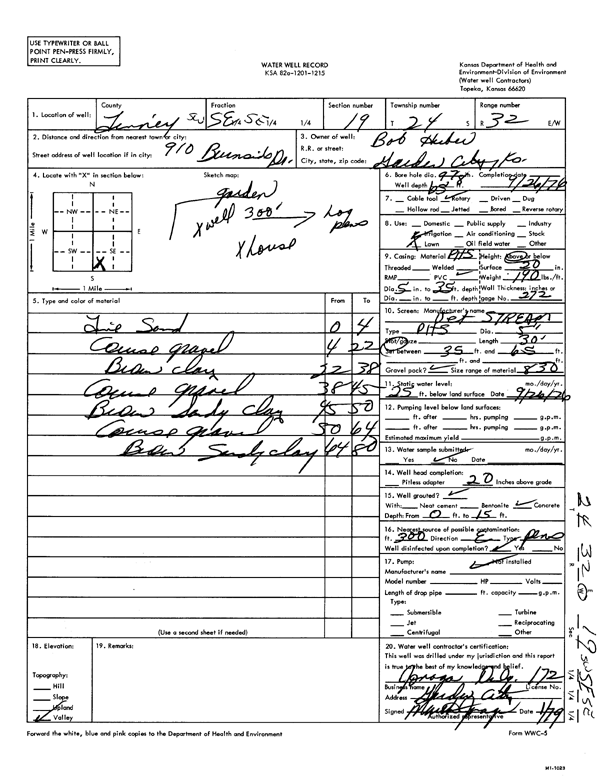 USE TYPEWRITER OR BALL
POINT PEN-PRESS FIRMLY,
PRINT CLEARLY.
WATER WELL RECORD
KSA 82a-1201-1215
Kansas Department of Health and
Environment-Division of Environment
(Water well Contractors)
Topeka, Kansas 66620
1. Location of well:
County
Finney
Fraction
SW SE 1/4 SE 1/4 1/4
Section number
19
Township number
T 24 S
Range number
R 32 E/W
2. Distance and direction from nearest town or city:
Street address of well location if in city: 910 Burnside Dr.
3. Owner of well: Bob Huber
R.R. or street:
City, state, zip code: Garden City, Ks.
4. Locate with "X" in section below:
N
NW NE
W E
SW SE
X
S
1 Mile
1 Mile
Sketch map:
garden
X well 300' → hog pens
X house
5. Type and color of material From To
Fine Sand 0 4
Course gravel 4 22
Brown clay 22 38
Course gravel 38 45
Brown Sandy clay 45 50
Course gravel 50 64
Brown Sandy clay 64 80
(Use a second sheet if needed)
6. Bore hole dia. 9 7/8 in. Completion date
Well depth 65 ft. 9/26/76
7. Cable tool ✓ Rotary Driven Dug
Hollow rod Jetted Bored Reverse rotary
8. Use: Domestic Public supply Industry
X Irrigation Air conditioning Stock
X Lawn Oil field water Other
9. Casing: Material Height: Above or below
Threaded Welded Surface 20 in.
RMP PVC ✓ Weight 190 lbs./ft.
Dia. 5 in. to 35 ft. depth Wall Thickness: inches or
Dia. in. to ft. depth gage No. 272
10. Screen: Manufacturer's name
Jet STREAM
Type Dia. 5"
Slot/gauze Length 30'
Set between 35 ft. and 65 ft.
ft. and ft.
Gravel pack? ✓ Size range of material 830
11. Static water level: mo./day/yr.
25 ft. below land surface Date 9/26/76
12. Pumping level below land surfaces:
ft. after hrs. pumping g.p.m.
ft. after hrs. pumping g.p.m.
Estimated maximum yield g.p.m.
13. Water sample submitted: mo./day/yr.
Yes ✓ No Date
14. Well head completion:
Pitless adapter 20 Inches above grade
15. Well grouted? ✓
With: Neat cement Bentonite ✓ Concrete
Depth: From 0 ft. to 15 ft.
16. Nearest source of possible contamination:
ft. 300 Direction E Type pens
Well disinfected upon completion? ✓ Yes No
17. Pump: ✓ Not installed
Manufacturer's name
Model number HP Volts
Length of drop pipe ft. capacity g.p.m.
Type:
Submersible Turbine
Jet Reciprocating
Centrifugal Other
18. Elevation:
Topography:
Hill
Slope
Upland
✓ Valley
19. Remarks:
20. Water well contractor's certification:
This well was drilled under my jurisdiction and this report
is true to the best of my knowledge and belief.
172
Business name License No.
Address Garden City
Signed Date 1/79
Authorized representative
Forward the white, blue and pink copies to the Department of Health and Environment
Form WWC-5
T 24 R 32 W Sec 19 SW SE SE
1/4 1/4 1/4